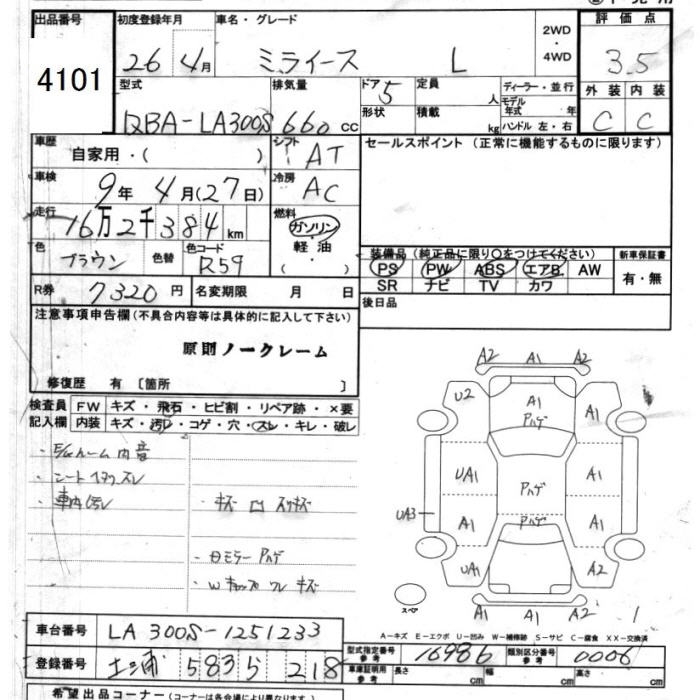 出品番号 初度登録年月 車名・グレード 2WD・4WD 評価点
4101 26 4月 ミライース L 3.5
型式 排気量 ドア 5 定員 人 ディーラー・並行 外装 内装
形状 積載 kg モデル年式 年 ハンドル 左・右 C C
RBA-LA300S 660 cc
車歴 自家用・( ) シフト AT セールスポイント (正常に機能するものに限ります)
車検 9年 4月(27日) 冷房 AC
走行 16万2千384 km 燃料 ガソリン・軽油 ( )
色 ブラウン 色替 色コード R59
装備品 (純正品に限り○をつけてください) 新車保証書
PS PW ABS エアB. AW 有・無
SR ナビ TV カワ
R券 7320 円 名変期限 月 日 後日品
注意事項申告欄 (不具合内容等は具体的に記入して下さい)
原則ノークレーム
修復歴 有 [箇所 ]
検査員 FW キズ・飛石・ヒビ割・リペア跡・×要
記入欄 内装 キズ・汚レ・コゲ・穴・スレ・キレ・破レ
・E/gルーム内音
・シート スレ
・車内汚レ
・キズ
・Bミラー Pハゲ
・Wキャップ ワレ キズ
A2 A1 A2
U2 A1 Pハゲ A1
UA1 Pハゲ A1
UA3 A1 Pハゲ A1
UA1 A2
スペア
A1 A1 A2
A-キズ E-エクボ U-凹み W-補修跡 S-サビ C-腐食 XX-交換済
車台番号 LA300S-1251233
型式指定番号 参考 16986 類別区分番号 参考 0006
登録番号 土浦 583 5 218
車庫証明用 参考 長さ cm 幅 cm 高さ cm
希望出品コーナー (コーナーは各会場により異なります。)